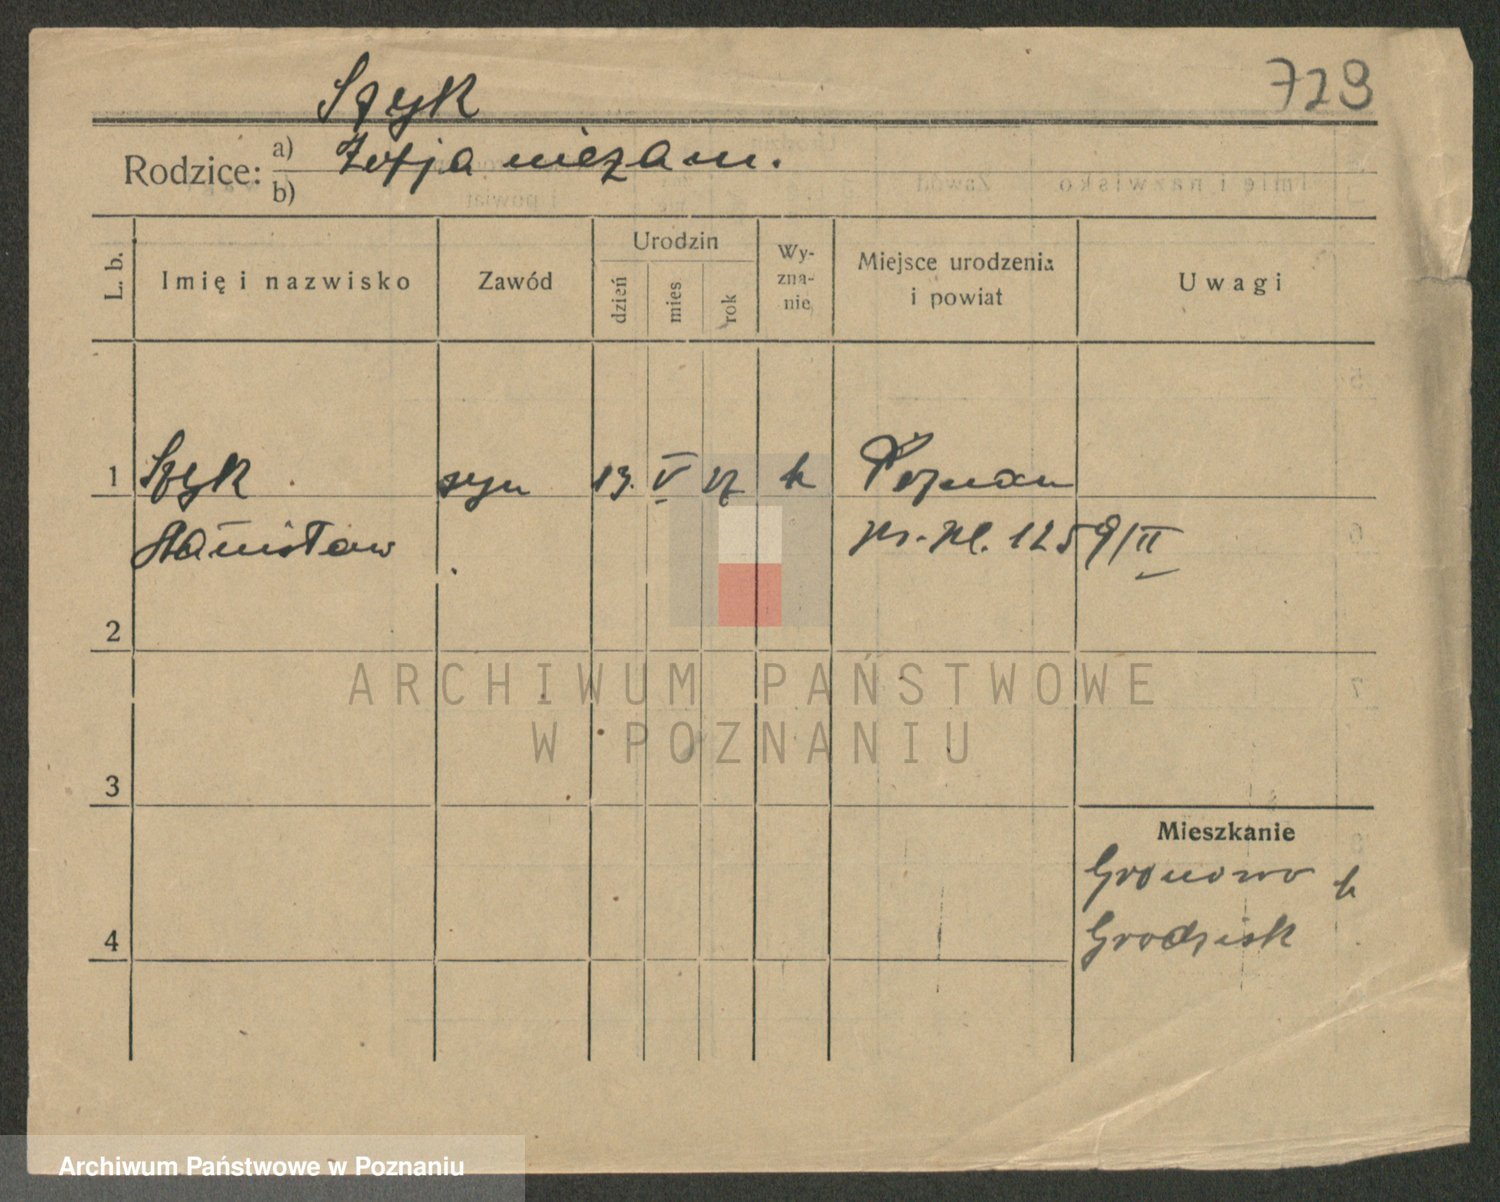 Szyk
723
Rodzice: a) Zofja niezam.
b)
L. b.
Imię i nazwisko
Zawód
Urodzin
dzień
mies
rok
Wy-
zna-
nie
Miejsce urodzenia
i powiat
Uwagi
1 Szyk syn 13. V 17 k Poznań
Stanisław pr. pl. 1259/II
2
3
4
Mieszkanie
Gronowo k
Grodzisk
ARCHIWUM PAŃSTWOWE
W POZNANIU
Archiwum Państwowe w Poznaniu